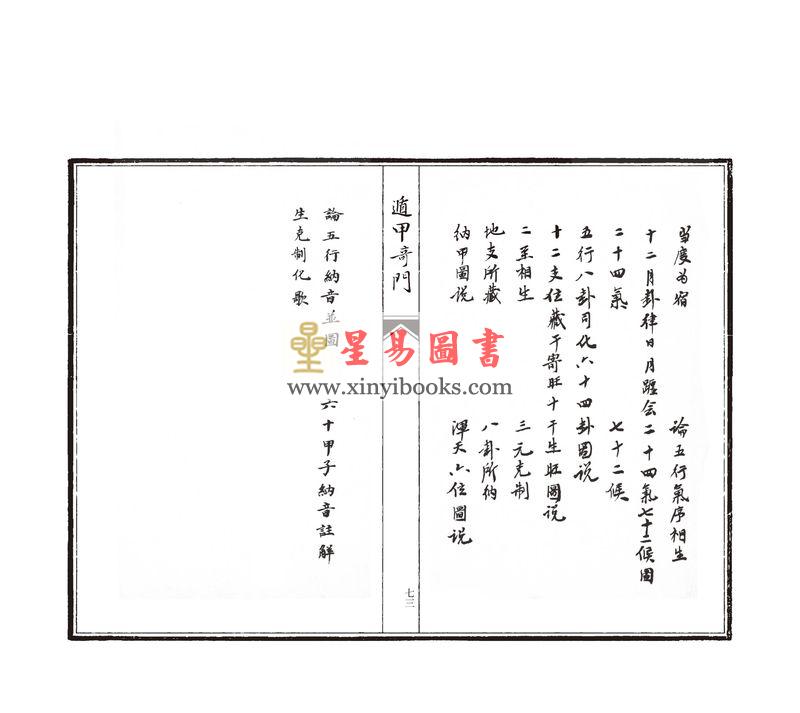 星易圖書
www.xinyibooks.com
當度为宿
論五行氣序相生
十二月卦律日月躔会二十四氣七十二候圖
二十四氣
七十二候
五行八卦司化六十四卦圖説
十二支位藏干寄旺十干生旺圖说
二至相生
三元克制
地支所藏
八卦所纳
纳甲圖说
渾天六位圖説
遁甲奇門
七三
論五行納音並圖
六十甲子納音註解
生克制化歌